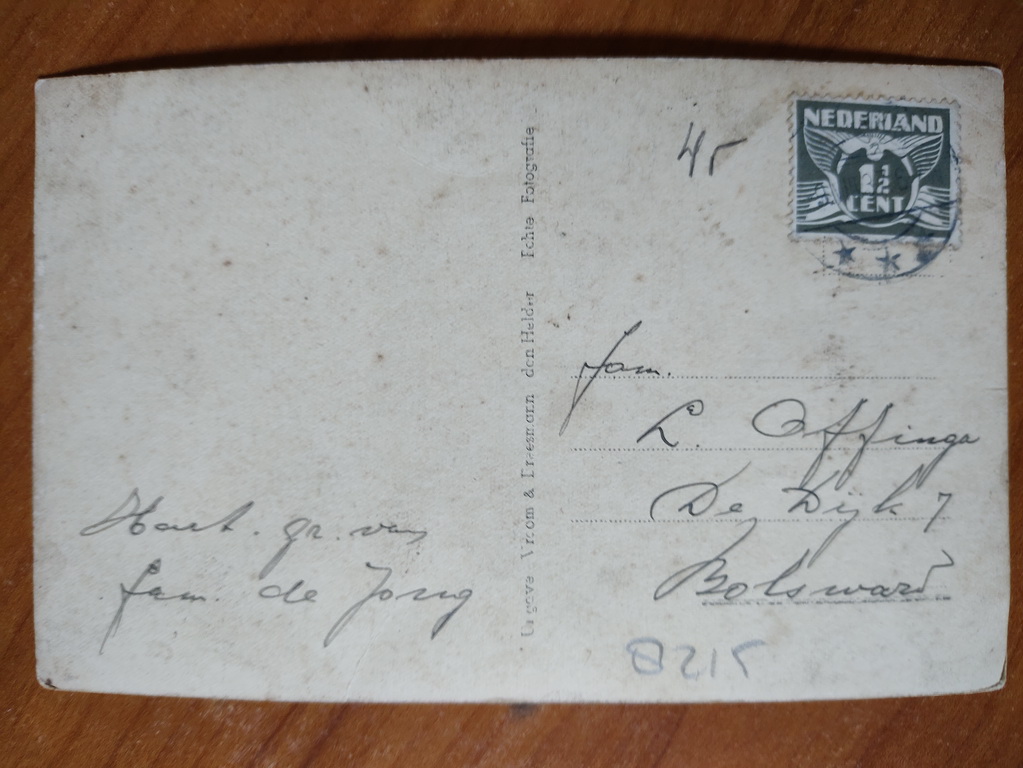 Hart. gr. van
fam. de Jong
Uitgave Vroom & Dreesmann den Helder Echte Fotografie
45
NEDERLAND
1 1/2
CENT
fam.
L. Offinga
De Dijk 7
Bolsward
B215